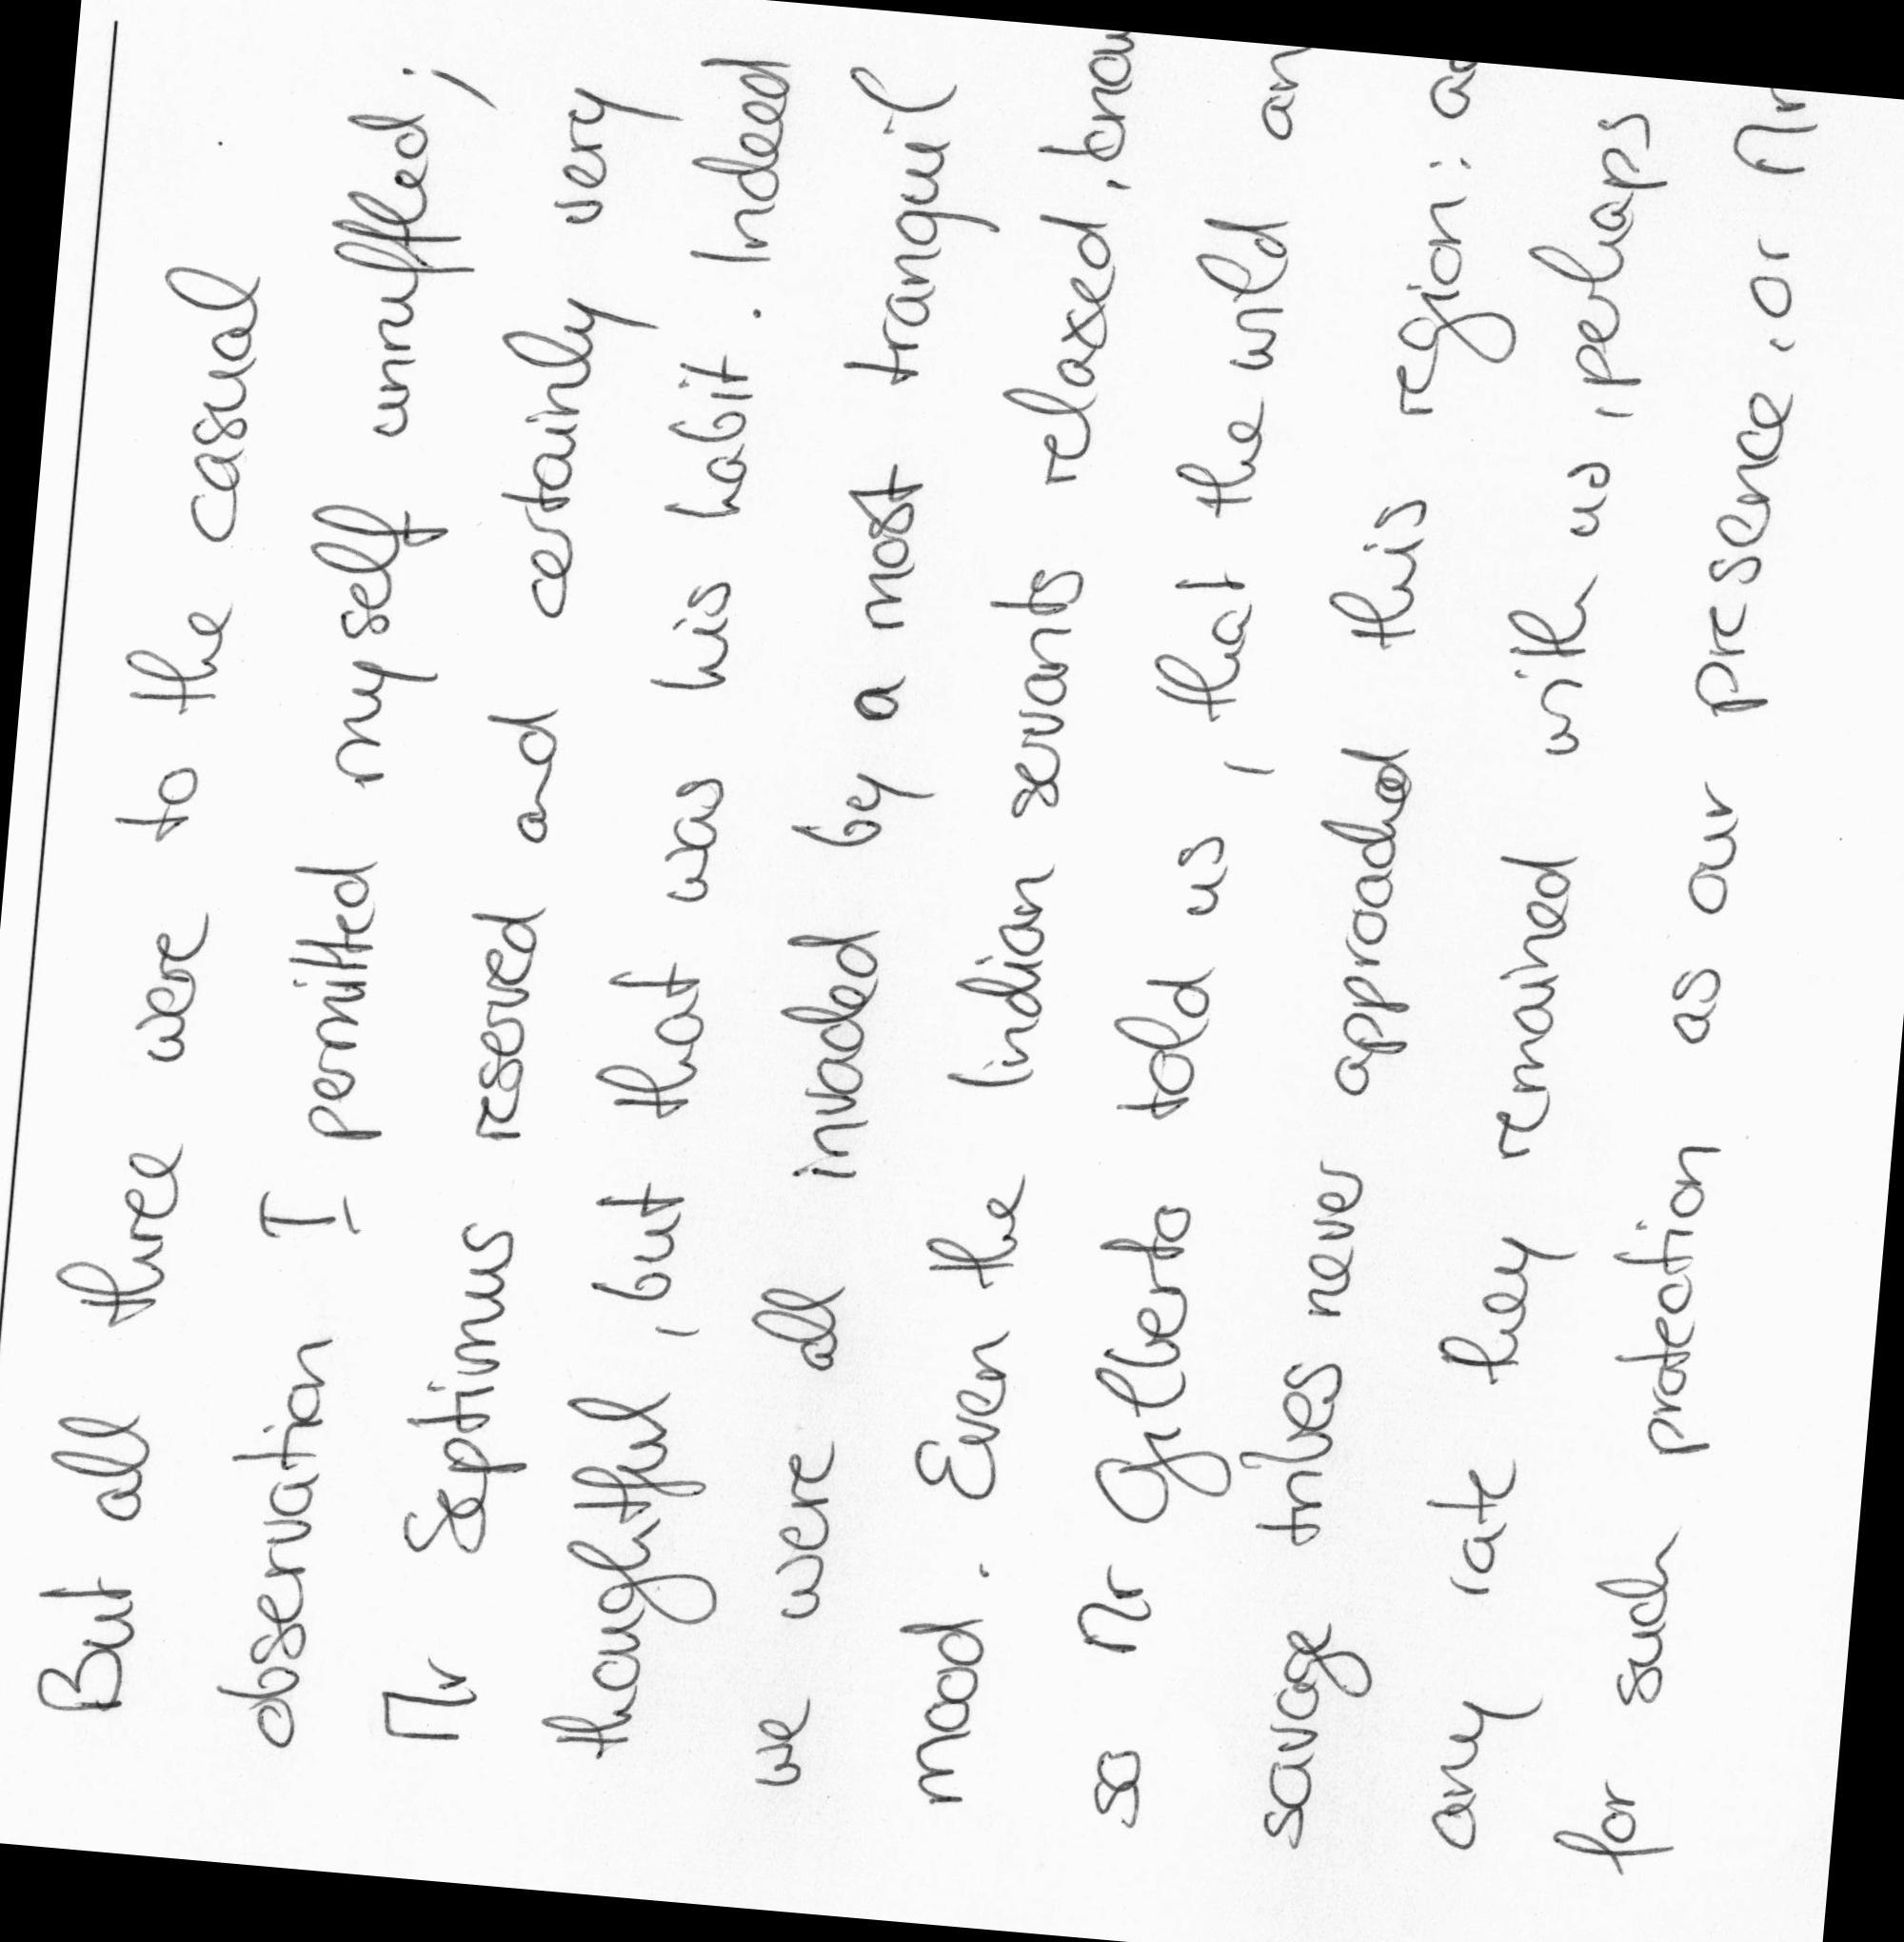 But all three were to the casual
observation I permitted myself unruffled;
Mr Septimus reserved and certainly very
thoughtful, but that was his habit. Indeed
we were all invaded by a most tranquil
mood. Even the Indian servants relaxed, know
so Mr Gilberto told us, that the wild an
savage tribes never approached this region:
any rate they remained with us, perhaps
for such protection as our presence, or Mr